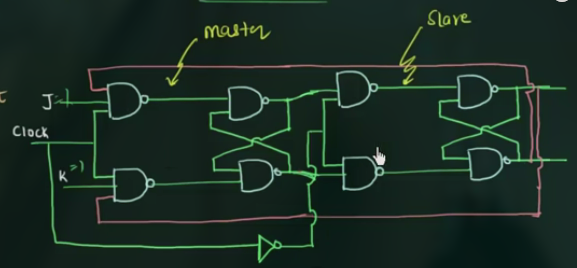 master
Slave
J=1
Clock
K=1